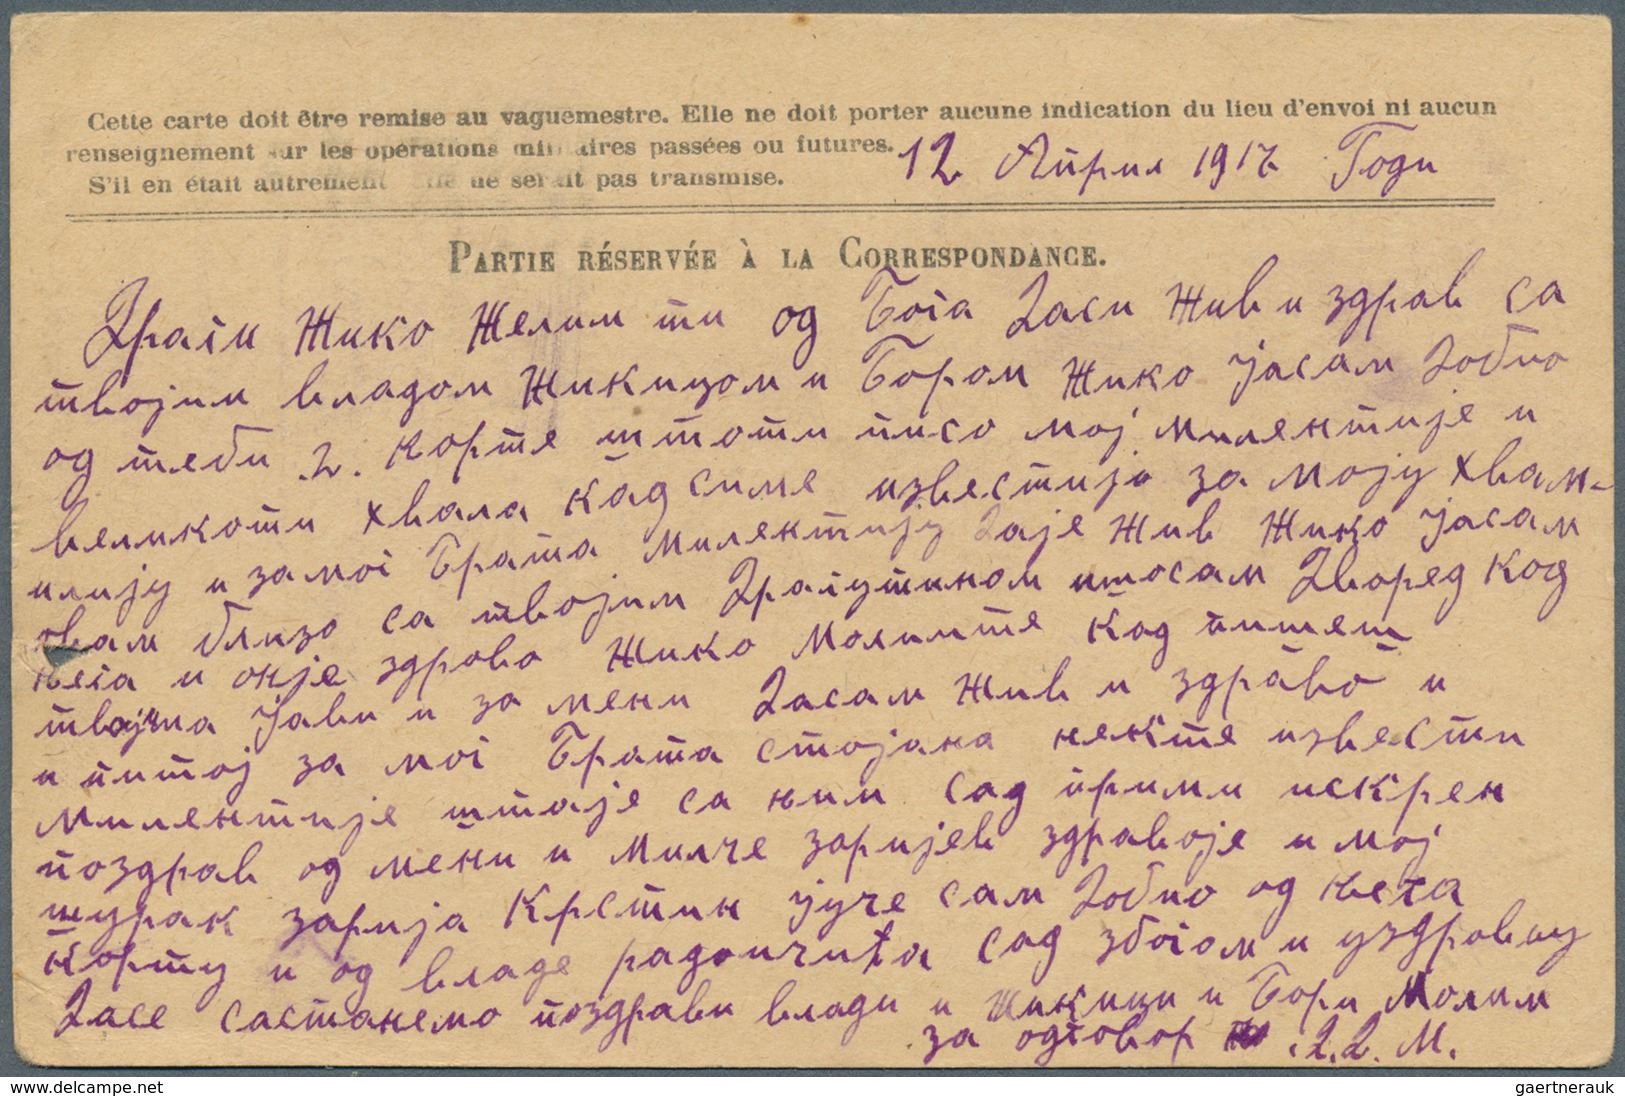 Cette carte doit être remise au vaguemestre. Elle ne doit porter aucune indication du lieu d'envoi ni aucun
renseignement sur les opérations militaires passées ou futures.
S'il en était autrement elle ne serait pas transmise.
12 Април 1917 Годи
PARTIE RÉSERVÉE À LA CORRESPONDANCE.
Драги Жико Желим ти од Бога Даси Жив и здрав са
твојим владом Жикицом и Бором Жико Јасам Добио
од теби 2. корте штоти писо мој милентије и
великоти хвала кад симе известијо за моју хвам-
илију и за мог Брата милентију Даје Жив Жико Јасам
вам близо са твојим Драгутином штосам Дворед код
њега и онје здраво Жико Молимте кад пишеш
твојима Јави и за мени Дасам Жив и здраво и
и питој за мог Брата стојана некте извести
милентије штаје са њим сад прими искрен
поздрав од мени и Милче зоријев здравоје и мој
шурак зарија Крстин јуче сам Добио од њега
корту и од владе радоичића сад збогом и уздрављу
Дасе састанемо поздрави влади и Жикици и Бори Молим
за одговор .Д.Д. М.
delcampe.net
gaertnerauk